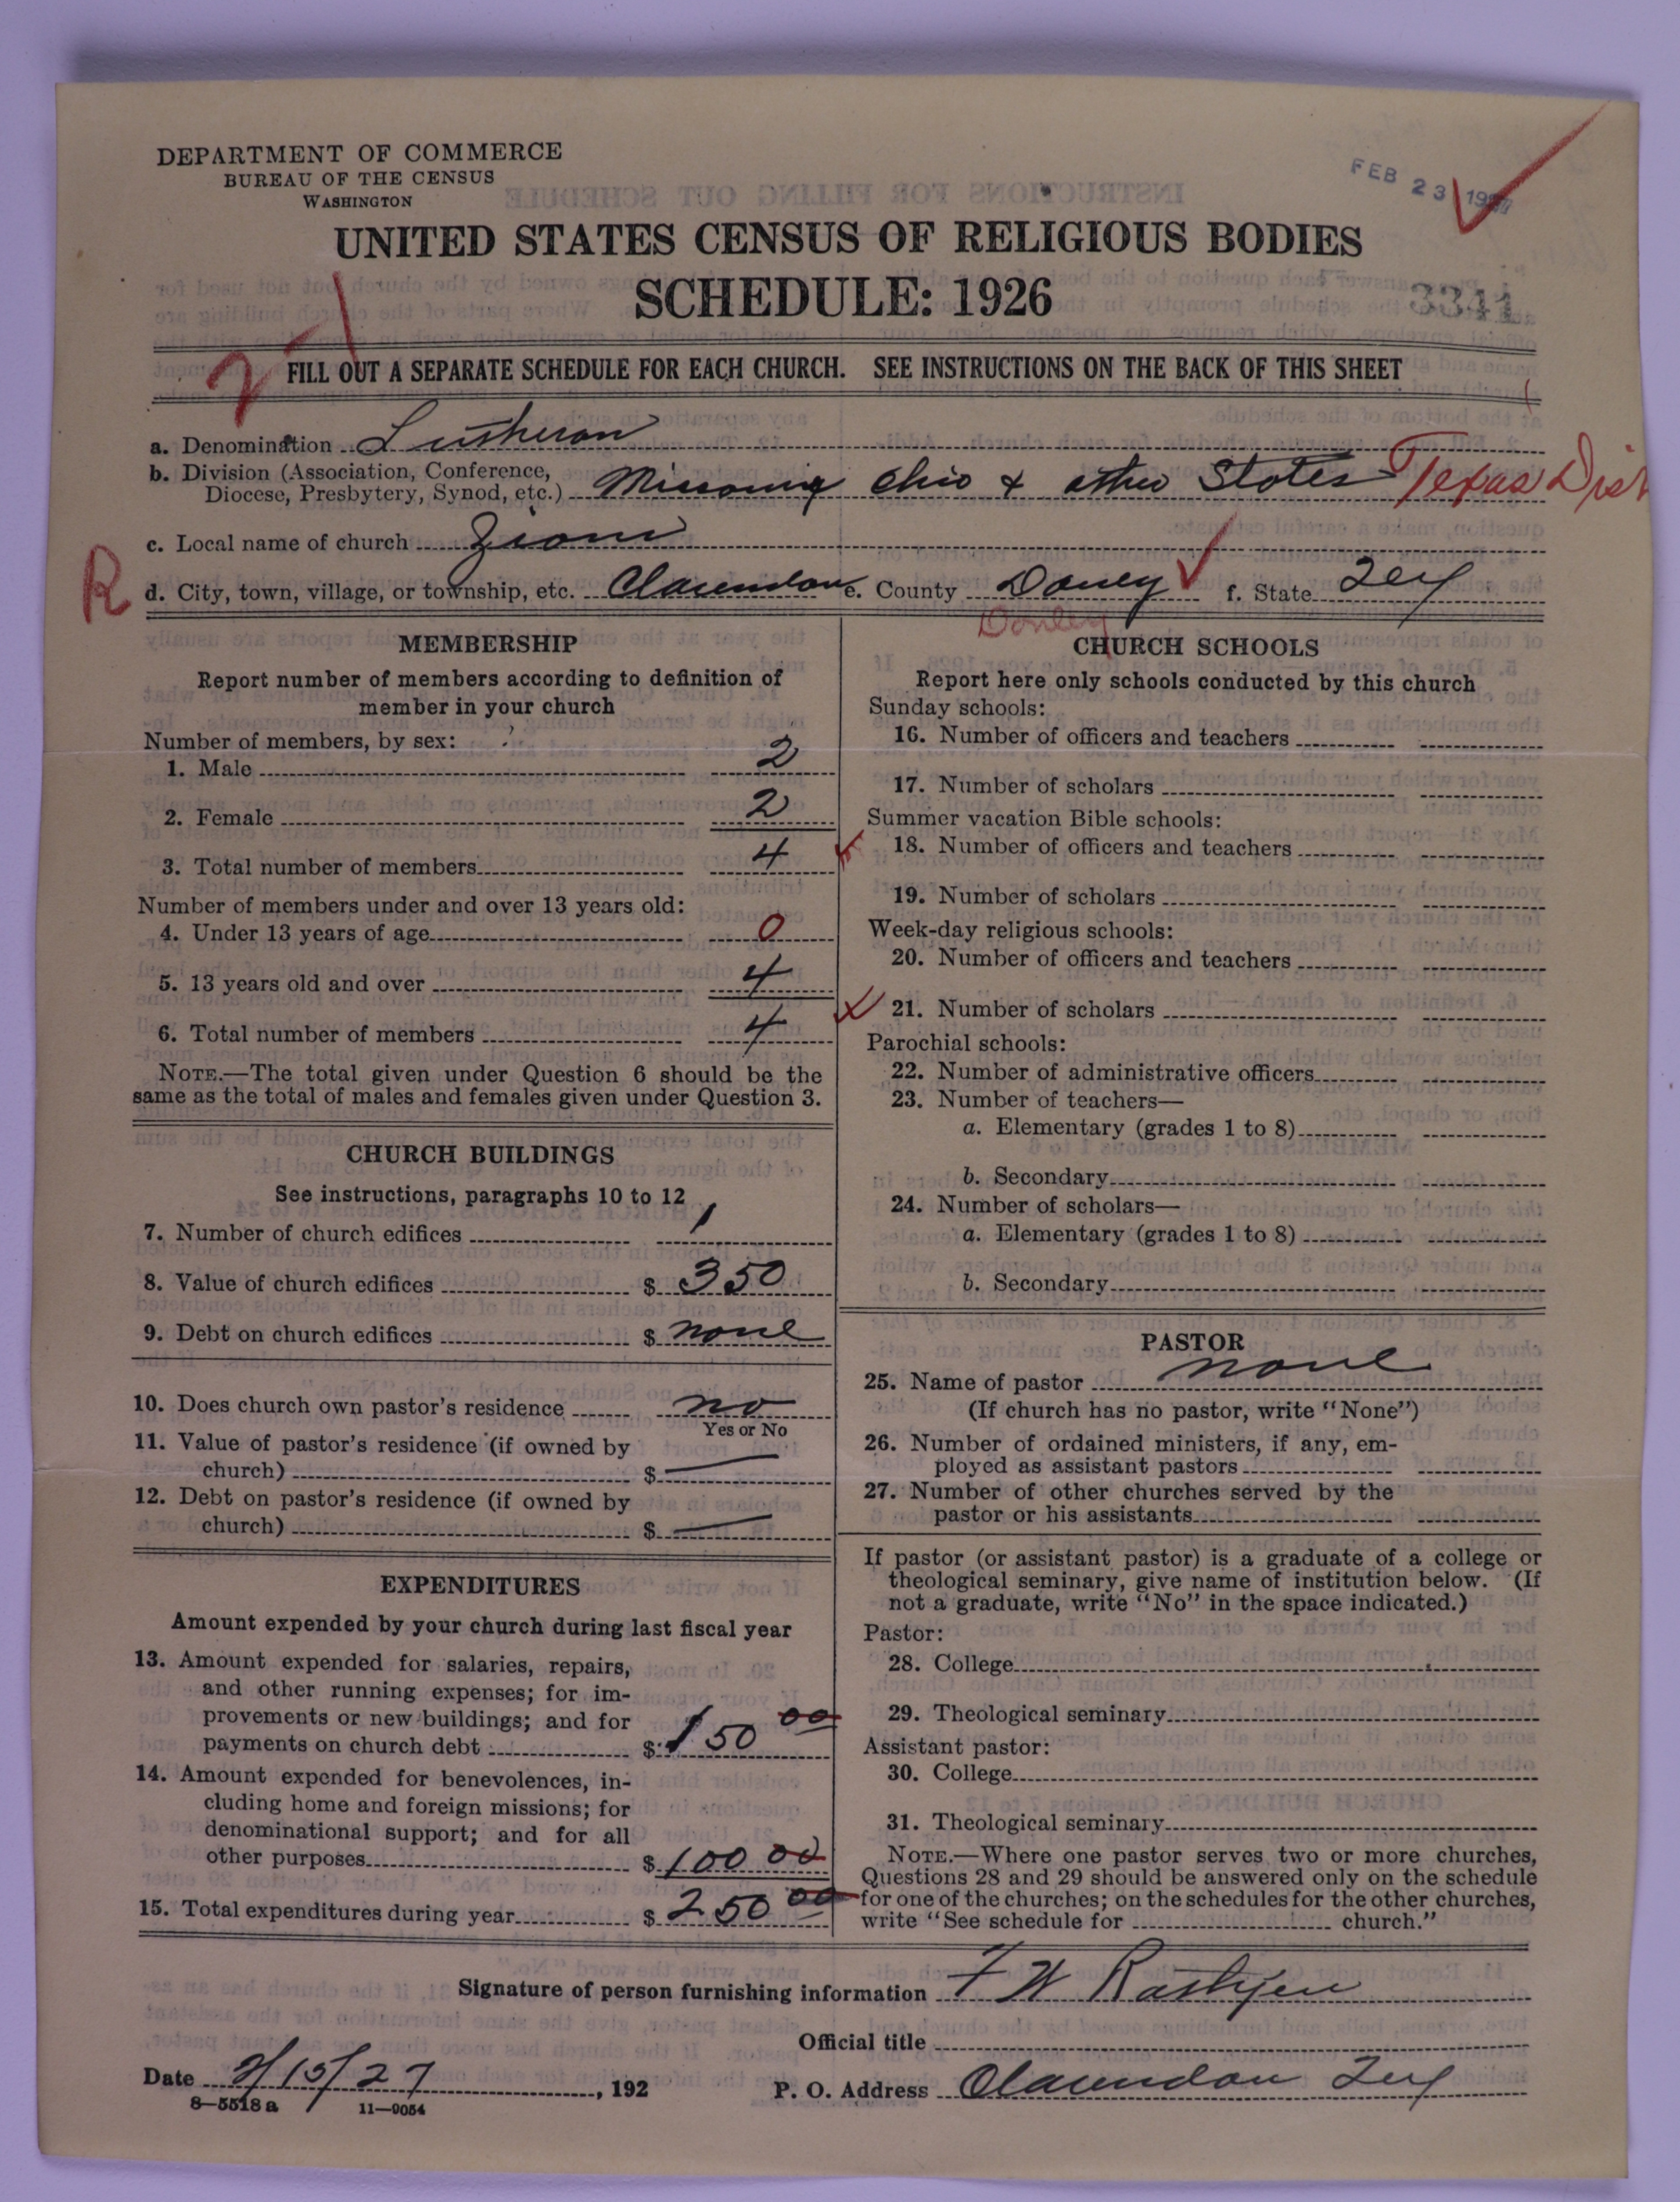 DEPARTMENT OF COMMERCE
BUREAU OF THE CENSUS
WASHINGTON
FEB 23 1927
UNITED STATES CENSUS OF RELIGIOUS BODIES
SCHEDULE: 1926
3341
FILL OUT A SEPARATE SCHEDULE FOR EACH CHURCH. SEE INSTRUCTIONS ON THE BACK OF THIS SHEET
a. Denomination Lutheran
b. Division (Association, Conference,
Diocese, Presbytery, Synod, etc.) Missouri Ohio & other States Texas Dist
c. Local name of church Zions
R
d. City, town, village, or township, etc. Clarendon e. County Donley f. State Tex
Donley
MEMBERSHIP
Report number of members according to definition of
member in your church
Number of members, by sex:
1. Male 2
2. Female 2
3. Total number of members 4
Number of members under and over 13 years old:
4. Under 13 years of age 0
5. 13 years old and over 4
6. Total number of members 4
NOTE.—The total given under Question 6 should be the
same as the total of males and females given under Question 3.
CHURCH BUILDINGS
See instructions, paragraphs 10 to 12
7. Number of church edifices 1
8. Value of church edifices $ 350
9. Debt on church edifices $ none
10. Does church own pastor's residence no
Yes or No
11. Value of pastor's residence (if owned by
church) $ —
12. Debt on pastor's residence (if owned by
church) $ —
EXPENDITURES
Amount expended by your church during last fiscal year
13. Amount expended for salaries, repairs,
and other running expenses; for im-
provements or new buildings; and for
payments on church debt $ 150 00
14. Amount expended for benevolences, in-
cluding home and foreign missions; for
denominational support; and for all
other purposes $ 100 00
15. Total expenditures during year $ 250 00
CHURCH SCHOOLS
Report here only schools conducted by this church
Sunday schools:
16. Number of officers and teachers
17. Number of scholars
Summer vacation Bible schools:
18. Number of officers and teachers
19. Number of scholars
Week-day religious schools:
20. Number of officers and teachers
21. Number of scholars
Parochial schools:
22. Number of administrative officers
23. Number of teachers—
a. Elementary (grades 1 to 8)
b. Secondary
24. Number of scholars—
a. Elementary (grades 1 to 8)
b. Secondary
PASTOR
25. Name of pastor none
(If church has no pastor, write "None")
26. Number of ordained ministers, if any, em-
ployed as assistant pastors
27. Number of other churches served by the
pastor or his assistants
If pastor (or assistant pastor) is a graduate of a college or
theological seminary, give name of institution below. (If
not a graduate, write "No" in the space indicated.)
Pastor:
28. College
29. Theological seminary
Assistant pastor:
30. College
31. Theological seminary
NOTE.—Where one pastor serves two or more churches,
Questions 28 and 29 should be answered only on the schedule
for one of the churches; on the schedules for the other churches,
write "See schedule for church."
Signature of person furnishing information F W Rathjen
Official title
Date 2/15/27, 192
P. O. Address Clarendon Tex
8—5518 a 11—9054